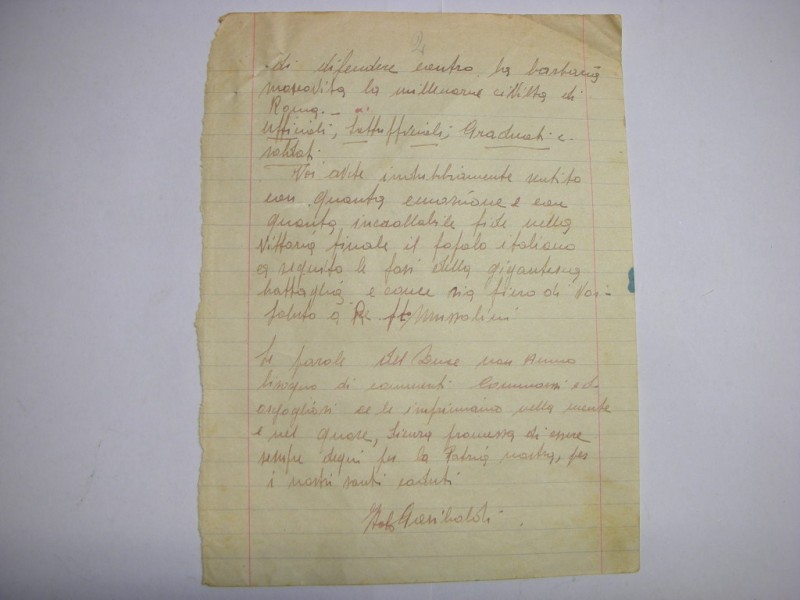 2
di difendere contro la barbaria
moscovita la millenaria civiltà di
Roma. —
Ufficiali, Sottufficiali, Graduati e
soldati.
Voi avete indubbiamente sentito
con quanta emozione e con
quanta incrollabile fide nella
Vittoria finale il popolo italiano
a seguito le fasi della gigantesca
battaglia e come sia fiero di Voi.
Saluto a Re. Mussolini
Le parole del Duce non anno
bisogno di commenti Commossi ed
orgogliosi ce le imprimiamo nella mente
e nel quore, sicura promessa di essere
sempre degni per la Patria nostra, per
i nostri santi caduti
Garibaldi.